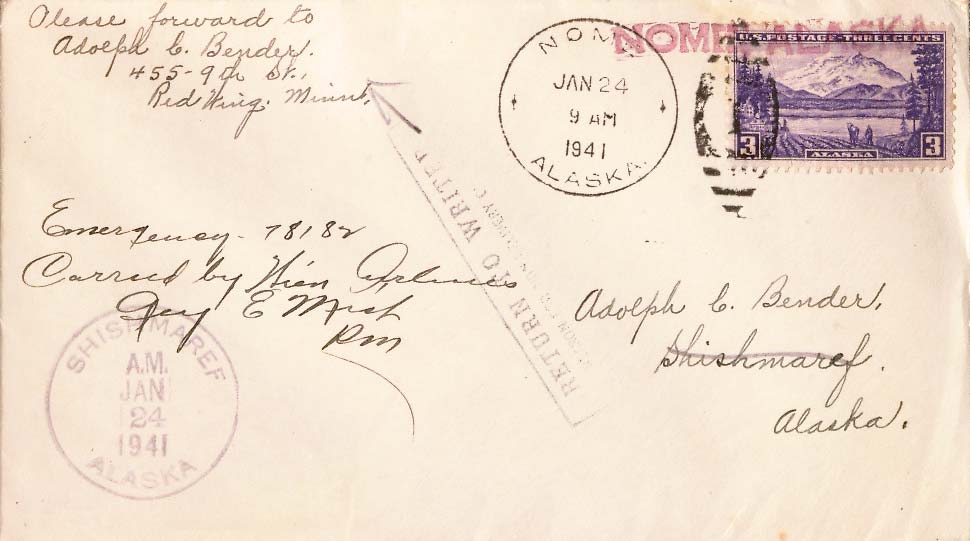 Please forward to
Adolph C. Bender.
455-9th St.,
Red Wing. Minn.
NOME, ALASKA
NOME
JAN 24
9 AM
1941
ALASKA.
U.S. POSTAGE-THREE CENTS
3
ALASKA
3
RETURN TO WRITER
Emergency - 78182
Carried by Wien Airlines
PM
SHISHMAREF
A.M.
JAN
24
1941
ALASKA
Adolph C. Bender,
Shishmaref.
Alaska.